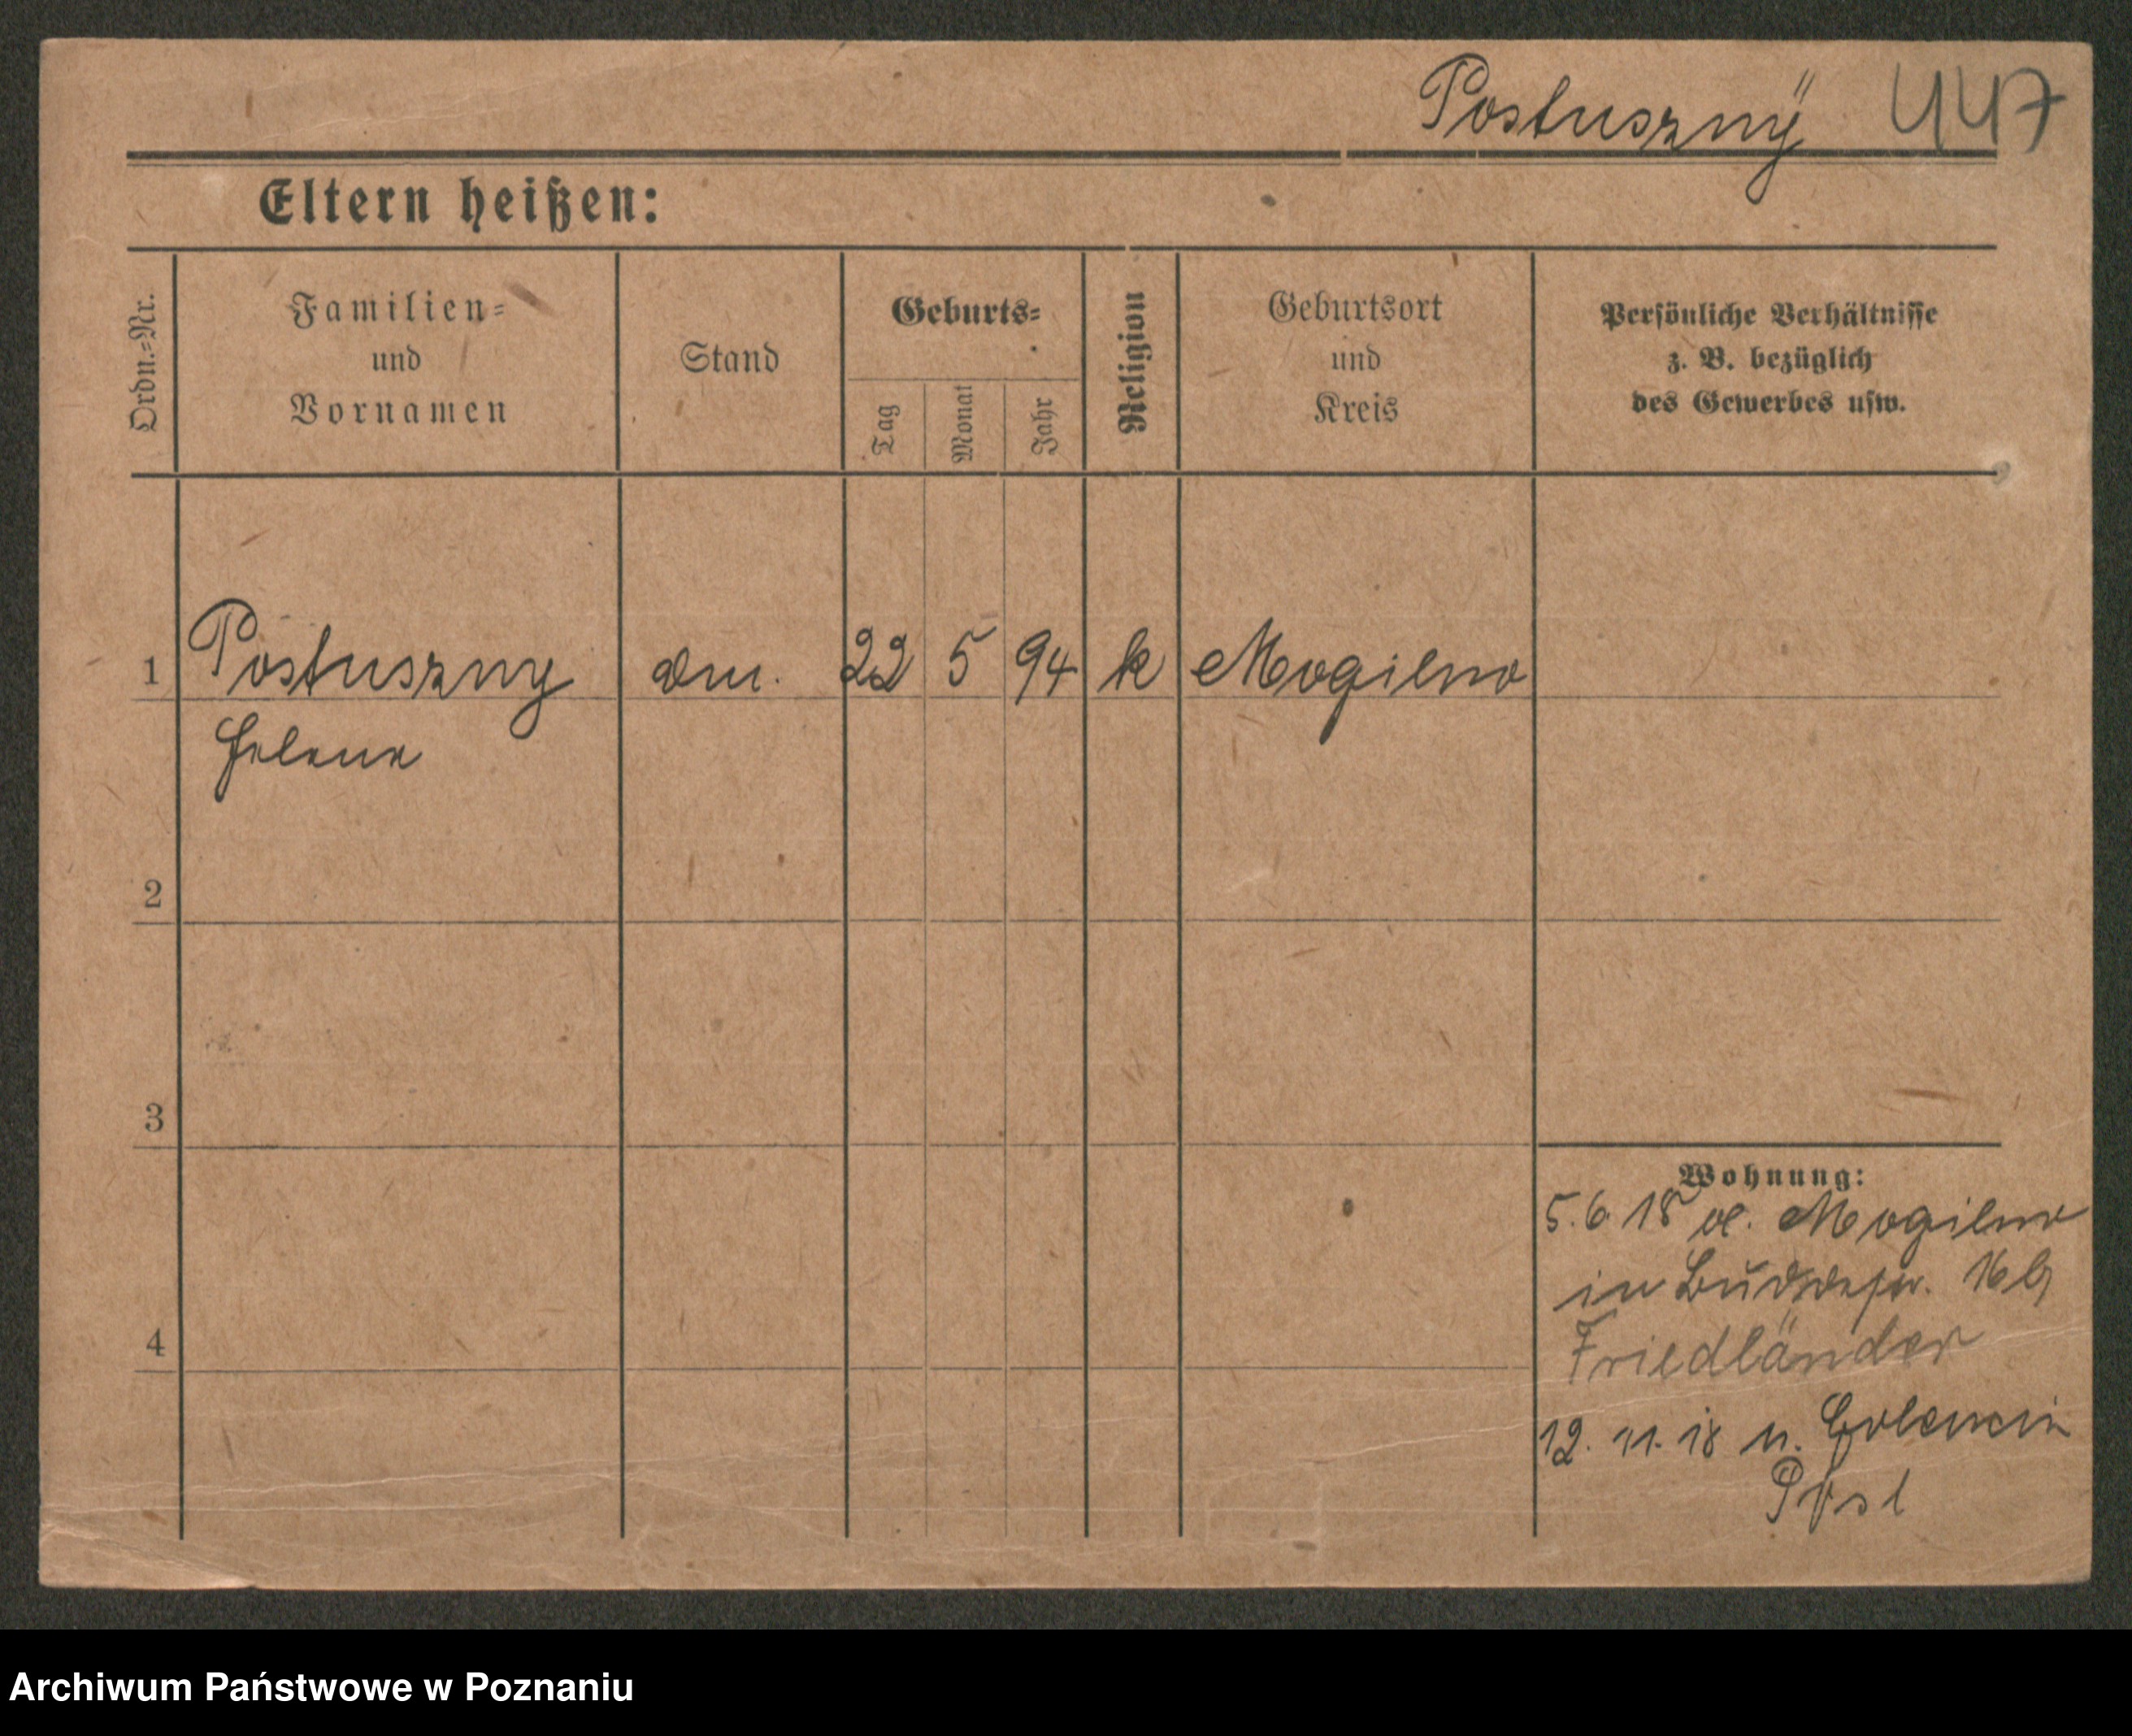 Postuszny 447
Eltern heißen:
Ordn.=Nr.
Familien=
und
Vornamen
Stand
Geburts=
Tag
Monat
Jahr
Religion
Geburtsort
und
Kreis
Persönliche Verhältnisse
z. B. bezüglich
des Gewerbes usw.
1 Postuszny 22 5 94 k Mogilno
Helene
2
3
4
Wohnung:
5.6 18 Mogilno
in 16
Friedländer
12. 11. 18 n.
Archiwum Państwowe w Poznaniu